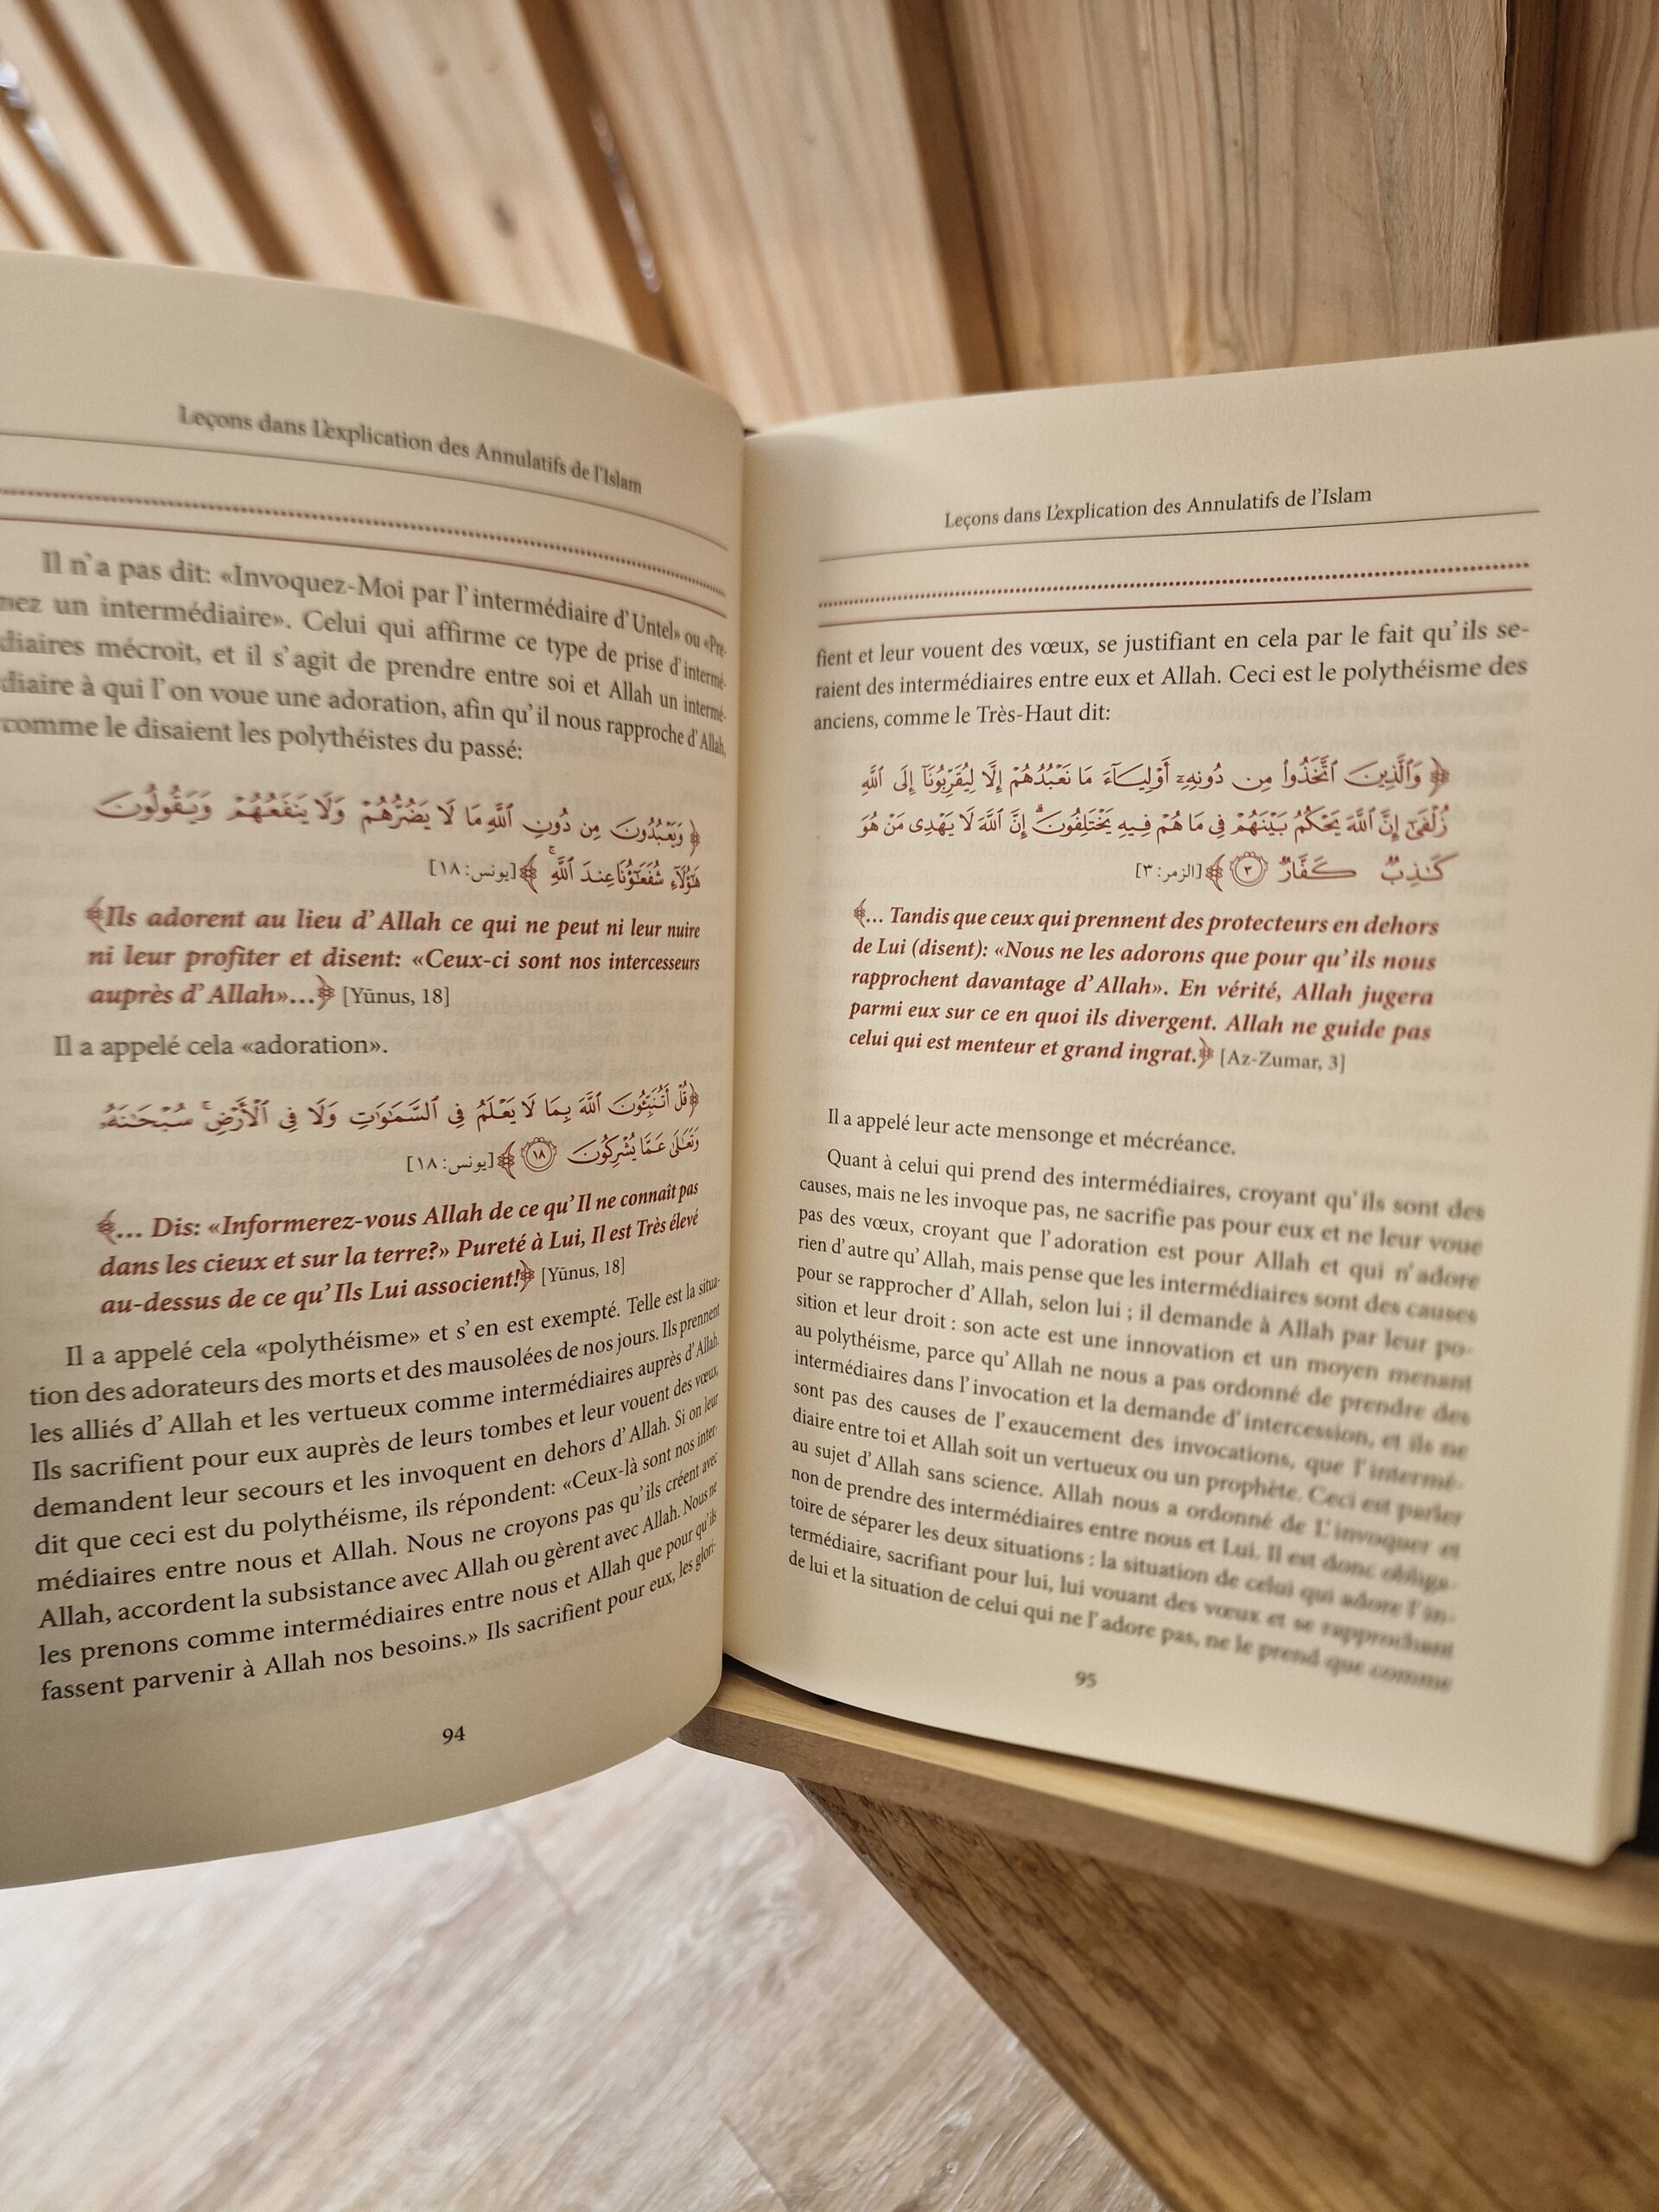 Leçons dans L'explication des Annulatifs de l'Islam
Il n'a pas dit: «Invoquez-Moi par l'intermédiaire d'Untel» ou «Pre-
nez un intermédiaire». Celui qui affirme ce type de prise d'intermé-
diaires mécroit, et il s'agit de prendre entre soi et Allah un intermé-
diaire à qui l'on voue une adoration, afin qu'il nous rapproche d'Allah,
comme le disaient les polythéistes du passé:
﴿ وَيَعْبُدُونَ مِن دُونِ ٱللَّهِ مَا لَا يَضُرُّهُمْ وَلَا يَنفَعُهُمْ وَيَقُولُونَ
هَٰٓؤُلَآءِ شُفَعَٰٓؤُنَا عِندَ ٱللَّهِ ۚ ﴾ [يونس: ١٨]
﴾Ils adorent au lieu d'Allah ce qui ne peut ni leur nuire
ni leur profiter et disent: «Ceux-ci sont nos intercesseurs
auprès d'Allah»...﴿ [Yūnus, 18]
Il a appelé cela «adoration».
﴿ قُلْ أَتُنَبِّـُٔونَ ٱللَّهَ بِمَا لَا يَعْلَمُ فِى ٱلسَّمَٰوَٰتِ وَلَا فِى ٱلْأَرْضِ ۚ سُبْحَٰنَهُۥ
وَتَعَٰلَىٰ عَمَّا يُشْرِكُونَ ١٨ ﴾ [يونس: ١٨]
﴾... Dis: «Informerez-vous Allah de ce qu'Il ne connaît pas
dans les cieux et sur la terre?» Pureté à Lui, Il est Très élevé
au-dessus de ce qu'Ils Lui associent!﴿ [Yūnus, 18]
Il a appelé cela «polythéisme» et s'en est exempté. Telle est la situa-
tion des adorateurs des morts et des mausolées de nos jours. Ils prennent
les alliés d'Allah et les vertueux comme intermédiaires auprès d'Allah.
Ils sacrifient pour eux auprès de leurs tombes et leur vouent des vœux,
demandent leur secours et les invoquent en dehors d'Allah. Si on leur
dit que ceci est du polythéisme, ils répondent: «Ceux-là sont nos inter-
médiaires entre nous et Allah. Nous ne croyons pas qu'ils créent avec
Allah, accordent la subsistance avec Allah ou gèrent avec Allah. Nous ne
les prenons comme intermédiaires entre nous et Allah que pour qu'ils
fassent parvenir à Allah nos besoins.» Ils sacrifient pour eux, les glori-
94
Leçons dans L'explication des Annulatifs de l'Islam
fient et leur vouent des vœux, se justifiant en cela par le fait qu'ils se-
raient des intermédiaires entre eux et Allah. Ceci est le polythéisme des
anciens, comme le Très-Haut dit:
﴿ وَٱلَّذِينَ ٱتَّخَذُوا۟ مِن دُونِهِۦٓ أَوْلِيَآءَ مَا نَعْبُدُهُمْ إِلَّا لِيُقَرِّبُونَآ إِلَى ٱللَّهِ
زُلْفَىٰٓ إِنَّ ٱللَّهَ يَحْكُمُ بَيْنَهُمْ فِى مَا هُمْ فِيهِ يَخْتَلِفُونَ ۗ إِنَّ ٱللَّهَ لَا يَهْدِى مَنْ هُوَ
كَٰذِبٌ كَفَّارٌ ٣ ﴾ [الزمر: ٣]
﴾... Tandis que ceux qui prennent des protecteurs en dehors
de Lui (disent): «Nous ne les adorons que pour qu'ils nous
rapprochent davantage d'Allah». En vérité, Allah jugera
parmi eux sur ce en quoi ils divergent. Allah ne guide pas
celui qui est menteur et grand ingrat.﴿ [Az-Zumar, 3]
Il a appelé leur acte mensonge et mécréance.
Quant à celui qui prend des intermédiaires, croyant qu'ils sont des
causes, mais ne les invoque pas, ne sacrifie pas pour eux et ne leur voue
pas des vœux, croyant que l'adoration est pour Allah et qui n'adore
rien d'autre qu'Allah, mais pense que les intermédiaires sont des causes
pour se rapprocher d'Allah, selon lui ; il demande à Allah par leur po-
sition et leur droit : son acte est une innovation et un moyen menant
au polythéisme, parce qu'Allah ne nous a pas ordonné de prendre des
intermédiaires dans l'invocation et la demande d'intercession, et ils ne
sont pas des causes de l'exaucement des invocations, que l'intermé-
diaire entre toi et Allah soit un vertueux ou un prophète. Ceci est parler
au sujet d'Allah sans science. Allah nous a ordonné de L'invoquer et
non de prendre des intermédiaires entre nous et Lui. Il est donc obliga-
toire de séparer les deux situations : la situation de celui qui adore l'in-
termédiaire, sacrifiant pour lui, lui vouant des vœux et se rapprochant
de lui et la situation de celui qui ne l'adore pas, ne le prend que comme
95